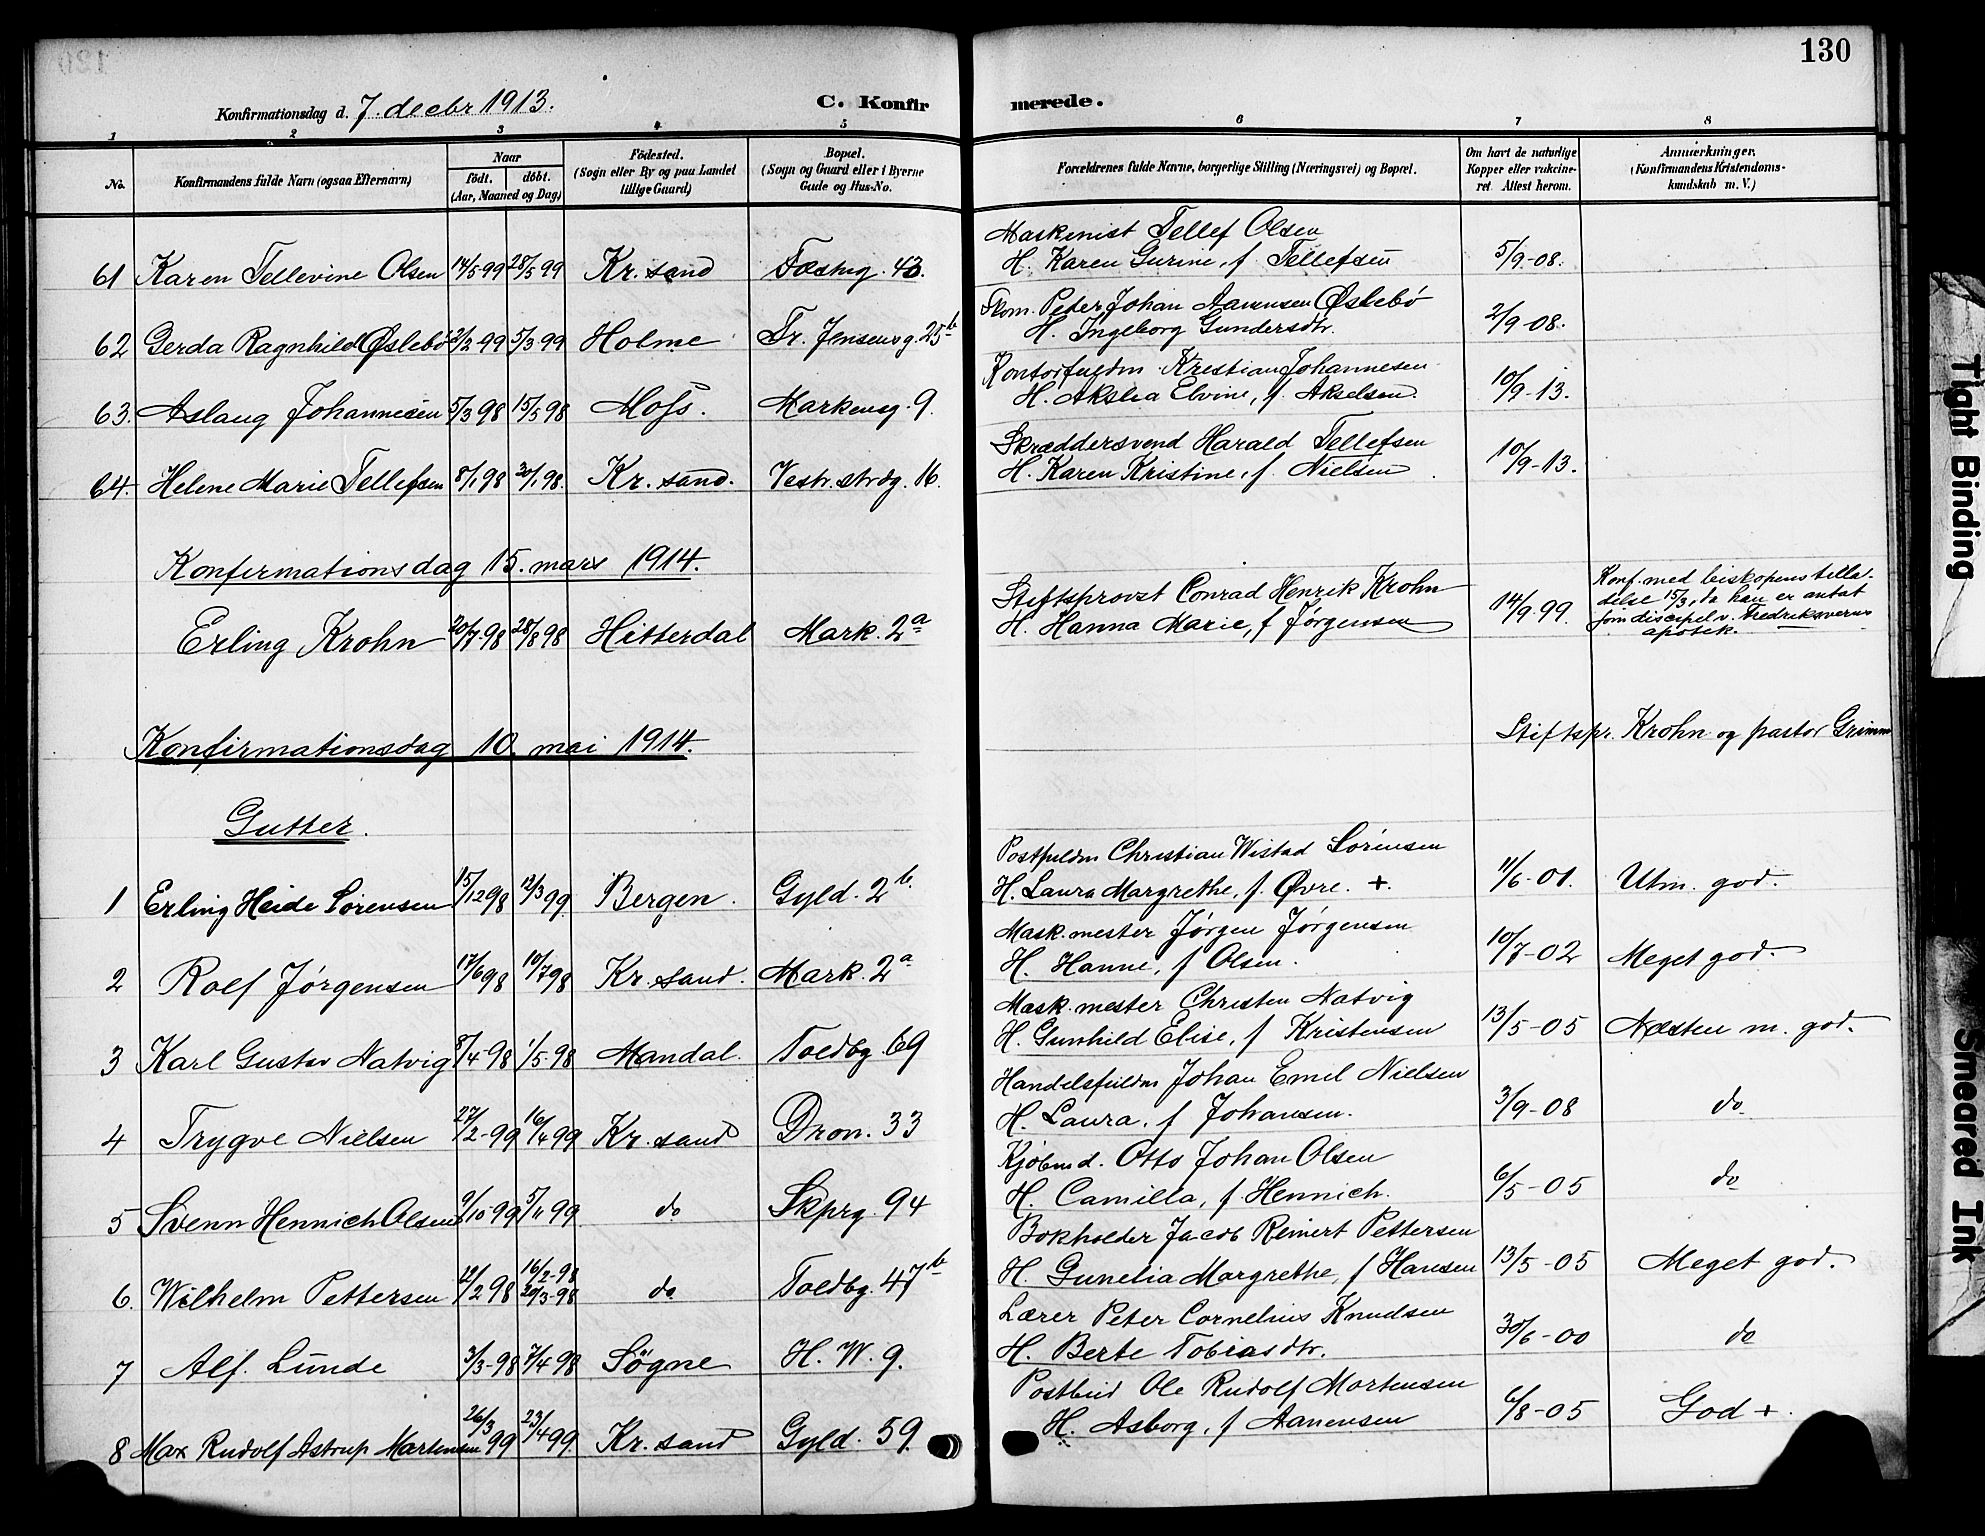 130
Konfirmationsdag d. 7. decbr 1913. C. Konfirmerede.
1 2 3 4 5 6 7 8
No. Konfirmandens fulde Navn (ogsaa Efternavn) Naar födt. döbt. (Aar, Maaned og Dag) Födested. (Sogn eller By og paa Landet tillige Gaard) Bopæl. (Sogn og Gaard eller i Byerne Gade og Hus-No. Forældrenes fulde Navne, borgerlige Stilling (Næringsvei) og Bopæl. Om havt de naturlige Kopper eller vakcineret. Attest herom. Anmærkninger. (Konfirmandens Kristendomskundskab m. V.)
Maskinist Tellef Olsen
61 Karen Tellevine Olsen 14/5 99 28/5 99 Kr. sand Fæstng. 43. H. Karen Gurine, f. Tellefsen 5/9-08.
Skom. Peter Johan Aanensen Øslebö
62 Gerda Ragnhild Øslebö 2/2 99 5/3 99 Holme Tr. Jensensg. 25b H. Ingeborg Gundersdtr. 2/9-08.
Kontorfuldm. Kristian Johannesen
63. Aslaug Johannesen 5/3 98 15/5 98 Moss. Markensg. 9. H. Akslia Elvine, f. Akselsen. 10/9-13.
Skræddersvend Harald Tellefsen
64. Helene Marie Tellefsen 8/1 98 30/1 98. Kr. sand. Vestr. strdg. 16. H. Karen Kristine, f. Nielsen 10/9-13.
Konfirmationsdag 15. mars 1914.
Stiftsprovst Conrad Henrik Krohn
Erling Krohn 20/7 98 28/8 98 Hitterdal Mark. 2a H. Hanna Marie, f. Jørgensen 14/9 99.
Konf. med biskopens tilladelse 15/3, da han er antat
som discipel v. Fredriksværns
apotek.
Konfirmationsdag 10. mai 1914. Stiftspr. Krohn og pastor Grimm
Gutter.
Postfuldm Christian Wistad Sörensen
1 Erling Heide Sörensen 15/12 98 12/3 99 Bergen. Gyld. 2b. H. Laura Margrethe, f. Øvre. +. 11/6-01. Utm. god.
Mask. mester Jørgen Jørgensen
2 Rolf Jørgensen 17/6 98 10/7 98 Kr. sand. Mark. 2a H. Hanne, f. Olsen. 10/7-02 Meget god.
Mask. mester Christen Natvig
3 Karl Gustav Natvig 8/4-98 1/5-98 Mandal. Toldbg. 69 H. Gunhild Elise, f. Kristensen 13/5-05 Næsten m. god.
Handelsfuldm Johan Emil Nielsen
4 Trygve Nielsen 27/2-99 16/4 99 Kr. sand Dron. 33 H. Laura, f. Johansen. 3/9-08 do
Kjöbmd. Otto Johan Olsen
5 Svenn Hennich Olsen 9/10-99 5/11 99 do Skprg. 94 H. Camilla, f. Hennich. 6/5-05 do
Bokholder Jacob Reinert Pettersen
6. Wilhelm Pettersen 12/2 98 16/2-98 20/3-98 do Toldbg. 47b H. Gunelia Margrethe, f. Hansen 13/5-05 Meget god.
Lærer Peter Cornelius Knudsen
7 Alf. Lunde 3/3-98 7/4 98 Sögne H. W. 9. H. Berte Tobiasdtr. 30/6-00 do
Postbud Ole Rudolf Mortensen
8 Max Rudolf Astrup Martensen 26/3 99 23/4 99 Kr. sand Gyld. 59. H. Asborg, f. Aanensen 6/8-05 God +.
Tight Binding
Smeared Ink